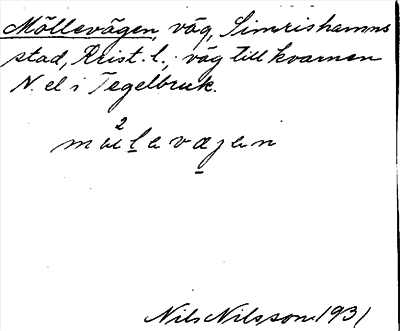 Möllevägen, väg, Simrishamns
stad, Krist. l., väg till kvarnen
N. el i Tegelbruk.
Nils Nilsson 1931